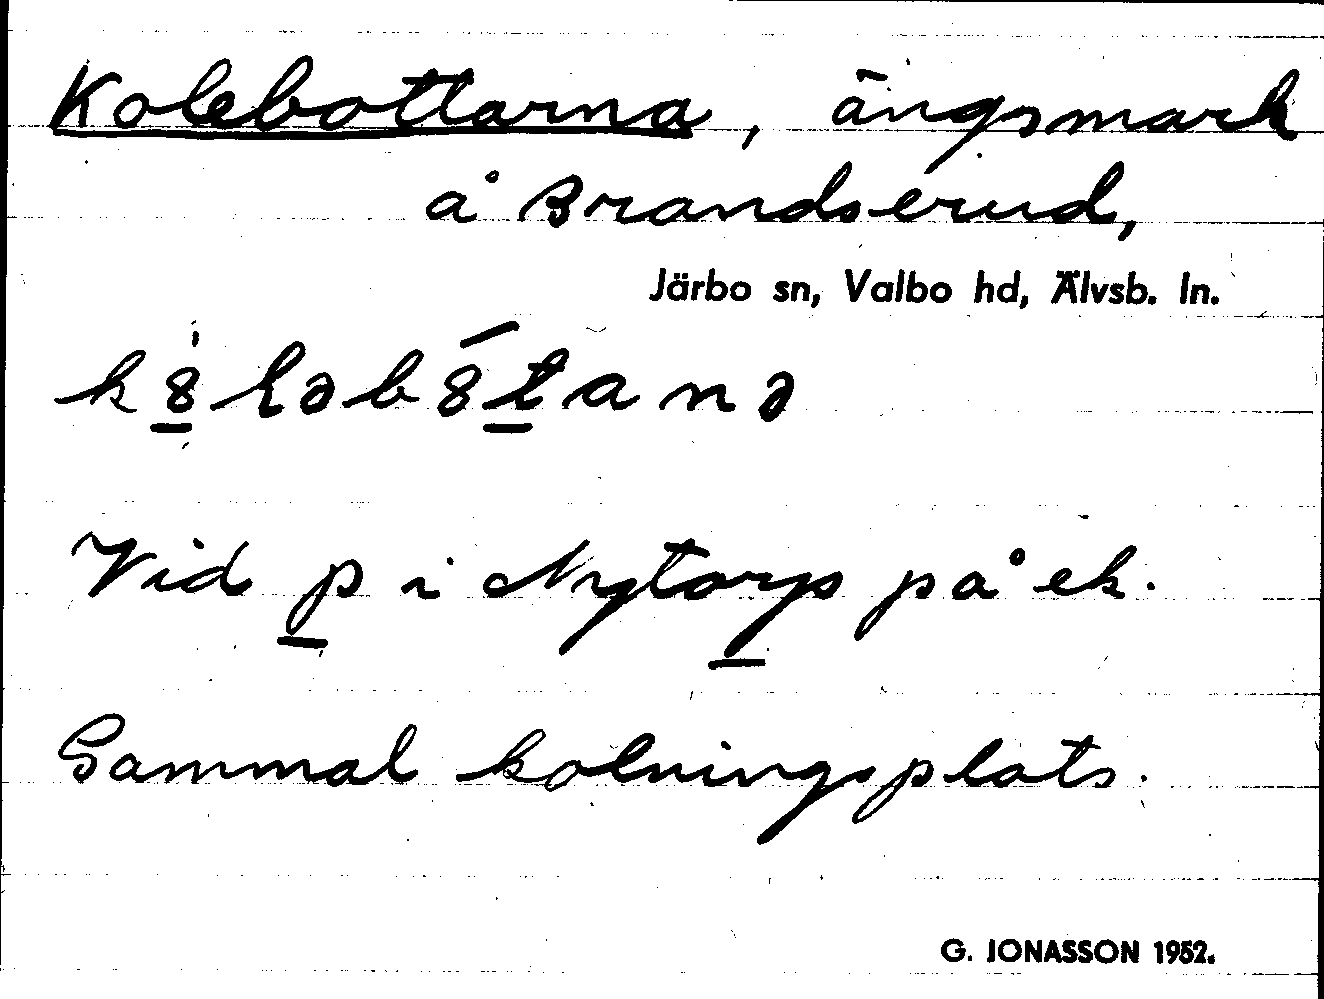 Kolebottarna, ängsmark
å Brandserud,
Järbo sn, Valbo hd, Älvsb. ln.
k8̱̀ləb8́ṯanə
Vid p i Nytorp på ek.
Gammal kolningsplats.
G. JONASSON 1952.